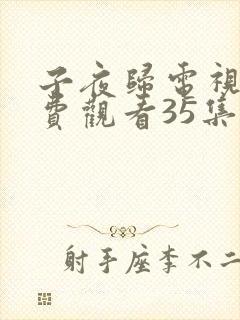 子夜歸電視
費觀看35集
射手座李不二